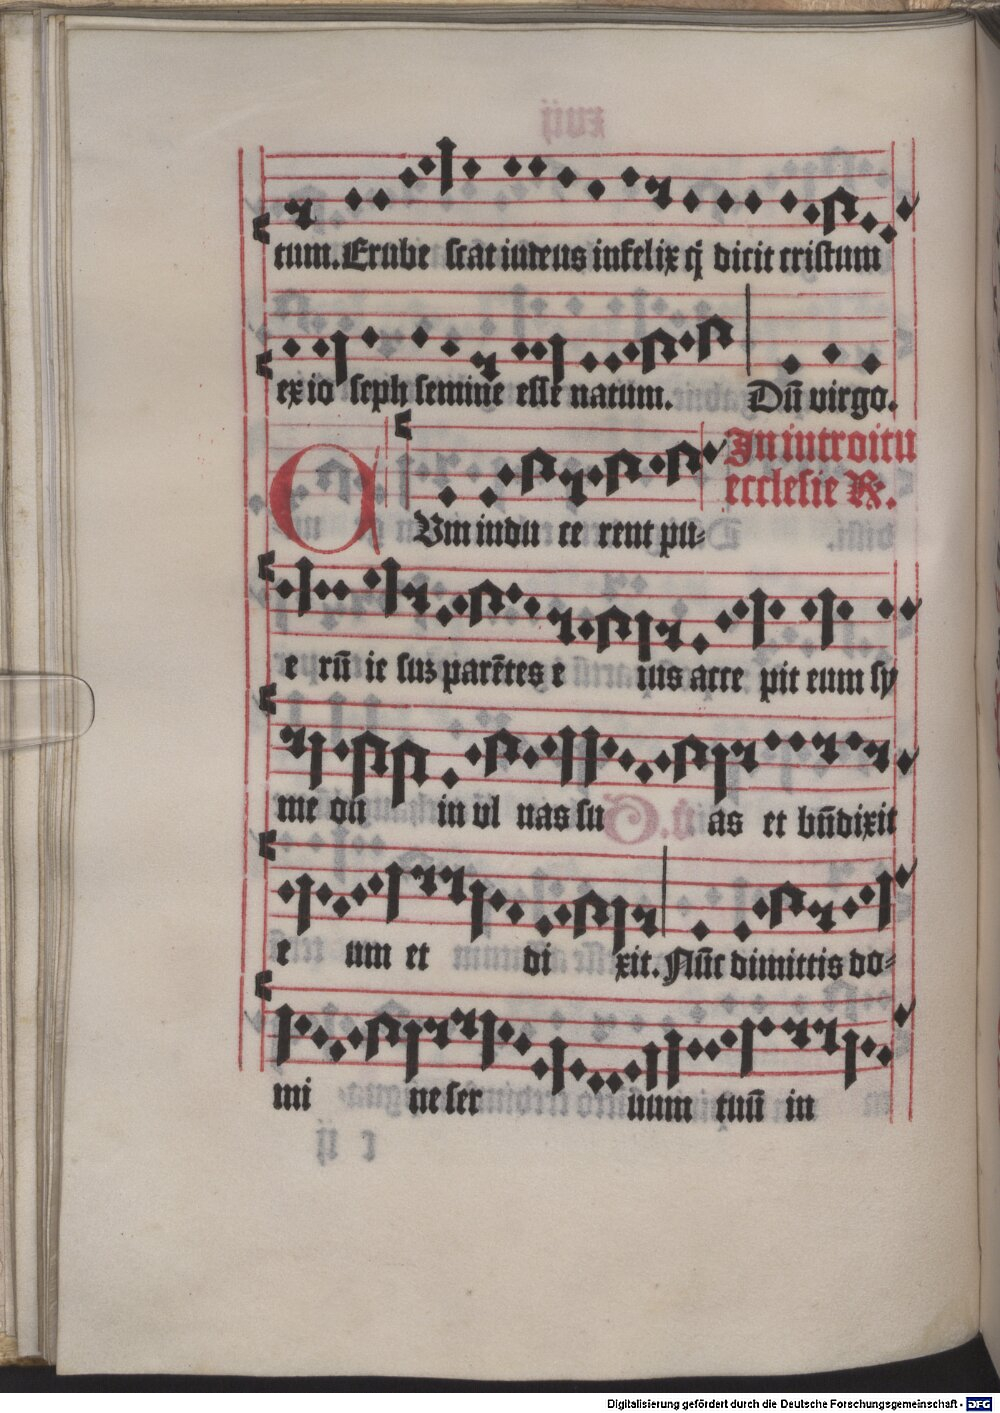 tum. Erube scat iudeus infelix q̄ dicit cristum
ex io seph semine esse natum. Dūm virgo.
In introitu
ecclesie R̷.
Cum indu ce rent pu-
e rū ie suz parētes e ius acce pit eum sy
me on in vl nas su as et bn̄dixit
e um et di xit. Nūc dimittis do-
mi ne ser uum tuū in
Digitalisierung gefördert durch die Deutsche Forschungsgemeinschaft - DFG